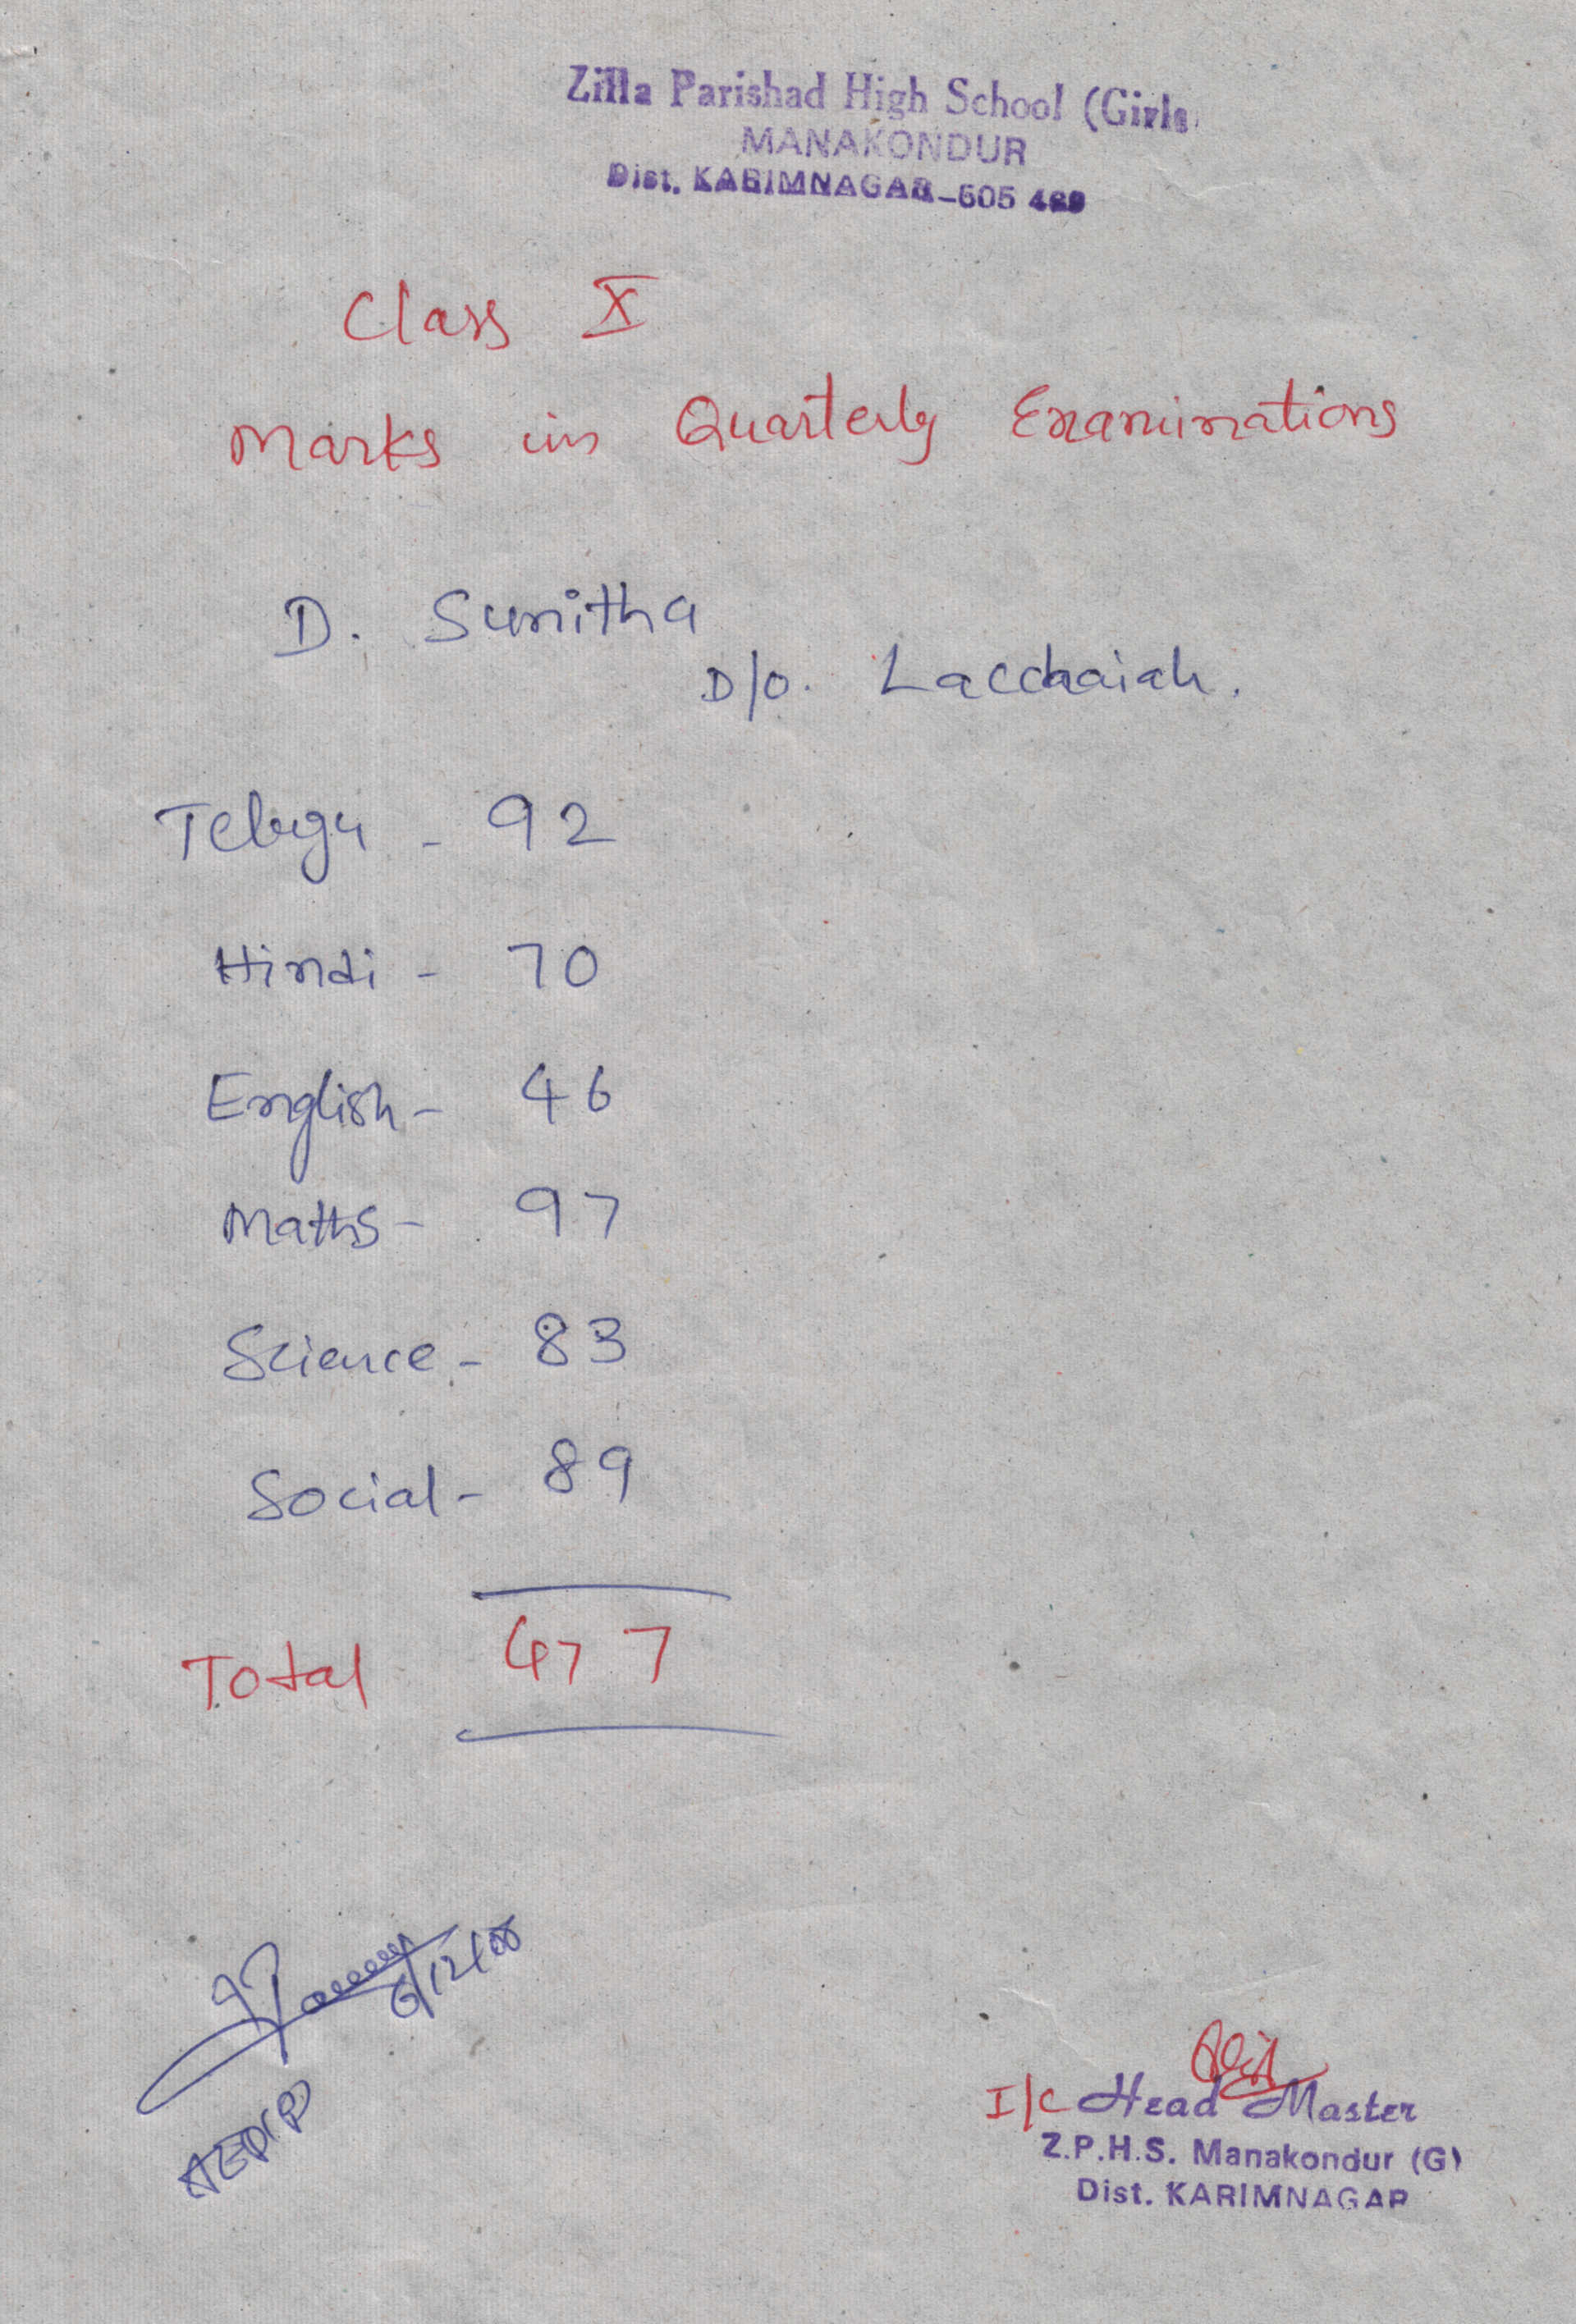 Zilla Parishad High School (Girls
MANAKONDUR
Dist. KARIMNAGAR-505 469
Class X
Marks in Quarterly Examinations
D. Sunitha
D/o. Lacchaiah.
Telugu - 92
Hindi - 70
English - 46
Maths - 97
Science - 83
Social - 89
Total 477
6/12/08
I/C Head Master
Z.P.H.S. Manakondur (G)
Dist. KARIMNAGAR